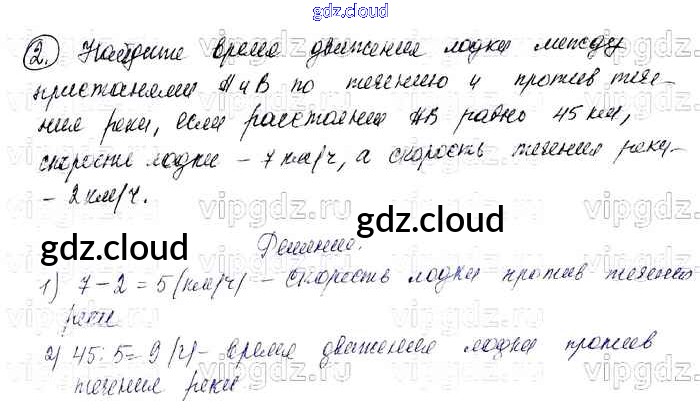 gdz.cloud
2. Найдите время движения лодки между
пристанями А и В по течению и против тече-
ния реки, если расстояния АВ равно 45 км,
скорости лодки - 7 км/ч, а скорость течения реки-
- 2 км/ч.
gdz.cloud
gdz.cloud
Решение.
1) 7 - 2 = 5 (км/ч) - скорость лодки против течения
реки
2) 45 : 5 = 9 (ч) - время движения лодки против
течения реки
vipgdz.ru